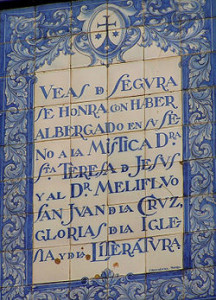 VEAS D SEGURA
SE HONRA CON HABER
ALBERGADO EN SU SE-
NO A LA MISTICA DRA
STA TERESA D JESUS
Y AL DR MELIFLVO
SAN JUAN D LA CRVZ,
GLORIAS D LA IGLE-
SIA Y D LA LITERATURA